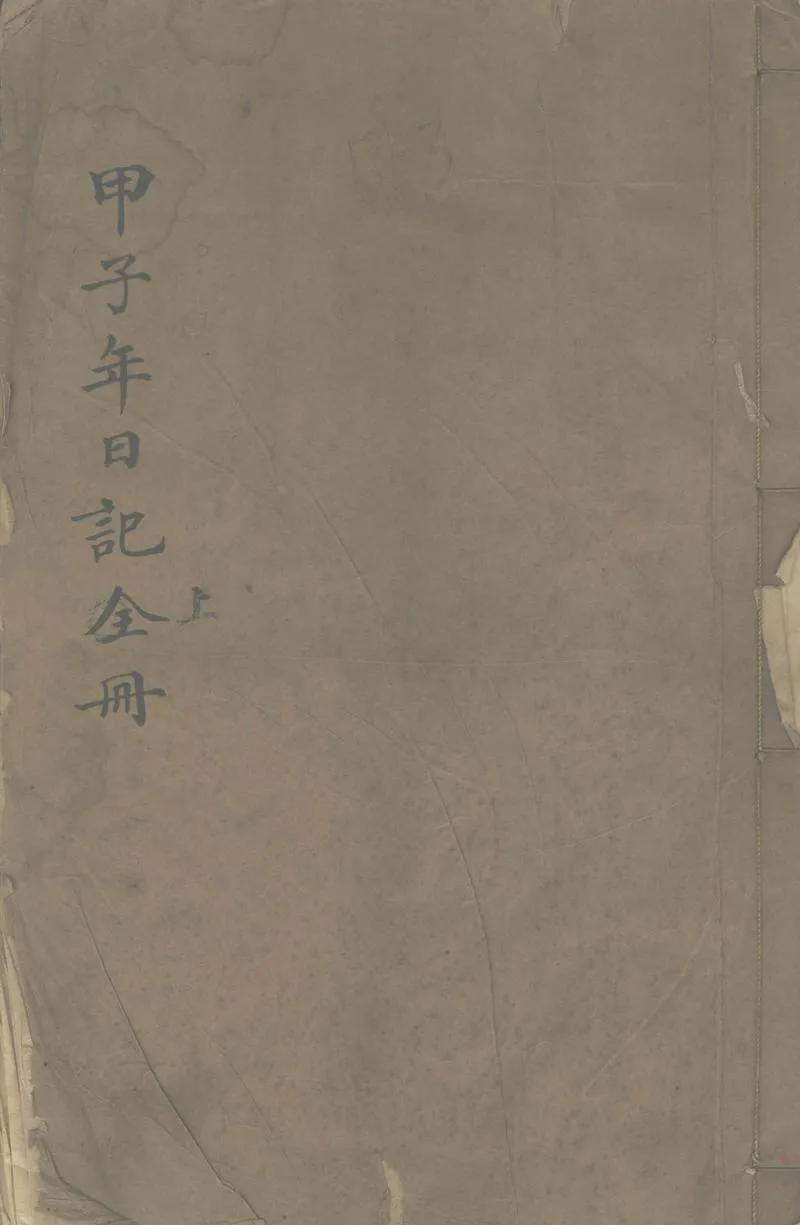 甲子年日記全冊
上